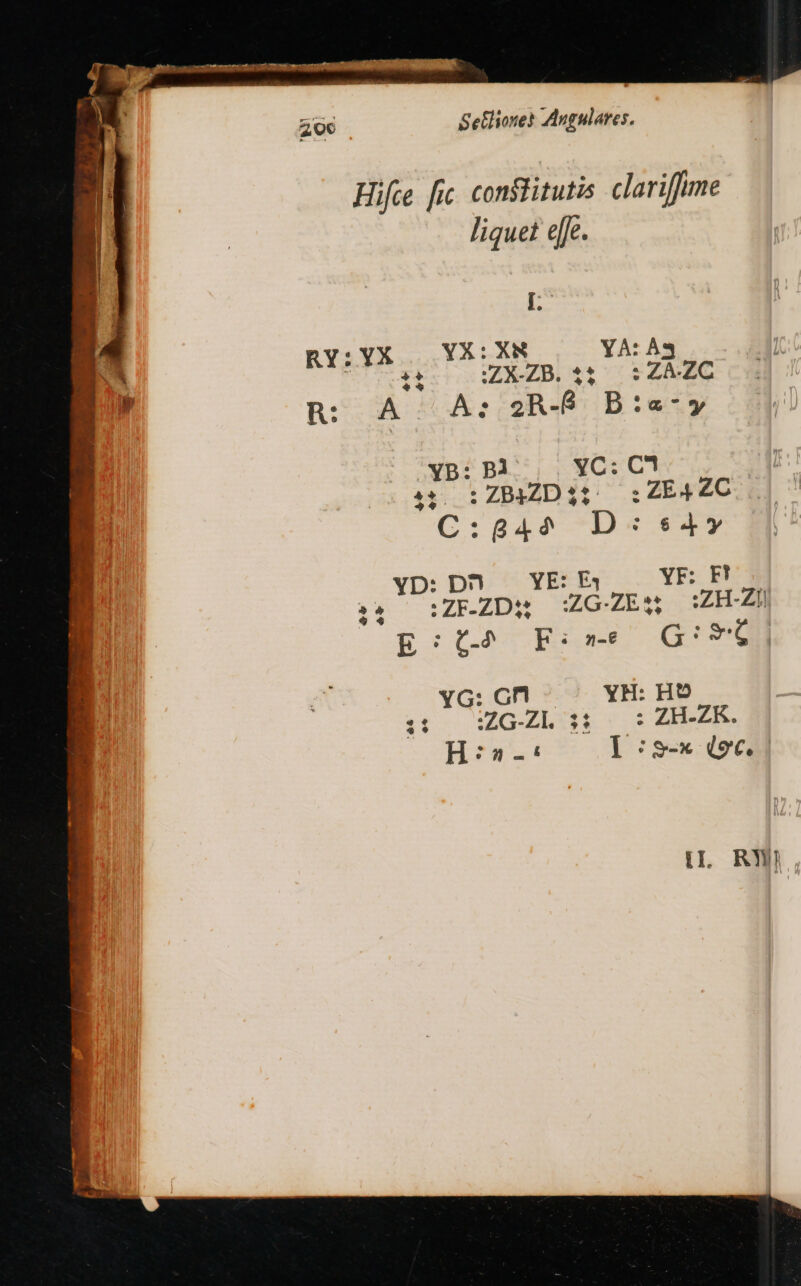 200 Sectiones Angulares.
Hisce sic constitutis clarissime
liquet esse.
I.
RY: YX YX: Xא YA: Aג
∷ :ZX-ZB. ∷ :ZA-ZC
R: A A: 2R-β B:α-γ
YB: Bב YC: Cד
∷ :ZB+ZD ∷ :ZE+ZC
C: β+δ D: ε+γ
YD: Dה YE: Eו YF: Fז
∷ :ZF-ZD ∷ :ZG-ZE ∷ :ZH-ZF
E: ζ-δ F: η-ε G: θ-ζ
YG: Gח YH: Hט
∷ :ZG-ZI. ∷ : ZH-ZK.
H: η-ι I: θ-κ &c.
II. RY